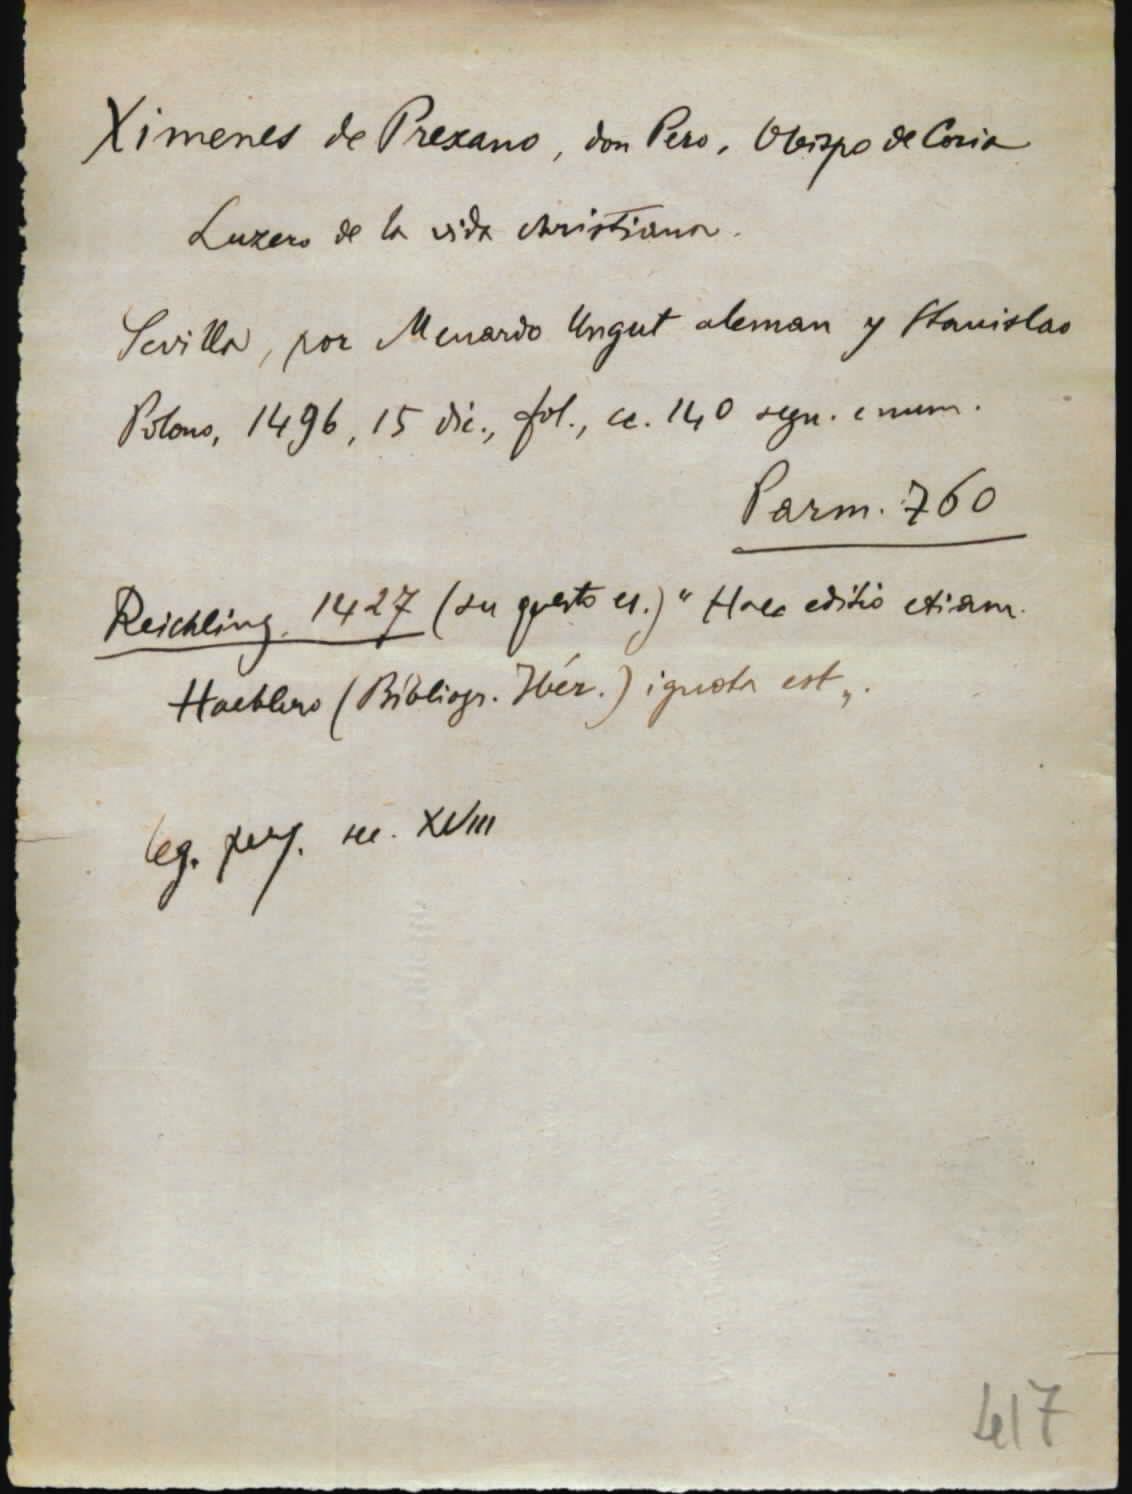 Ximenes de Prexano, don Pero, Obispo de Coria
Luzero de la vida christiana.
Sevilla, por Menardo Ungut aleman y Stanislao
Polono, 1496, 15 dic., fol., cc. 140 segn. e num.
Parm. 760
Reichling 1427 (su questo es.) "Haec editio etiam
Haeblero (Bibliogr. Ibér.) ignota est„.
leg. perg. sec. XVIII
417